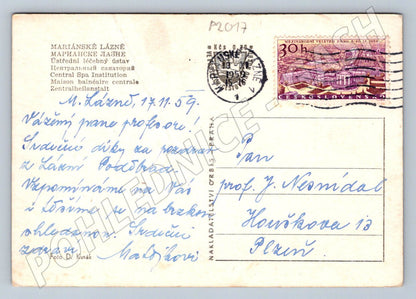 P2017
MARIÁNSKÉ LÁZNĚ
МАРИАНСКЕ ЛАЗНЕ
Ústřední léčebný ústav
Центральный санаторий
Central Spa Institution
Maison balnéaire centrale
Zentralheilanstalt
MARIÁNSKÉ LÁZNĚ 1
30h
ČESKOSLOVENSKO
M. Lázně, 17.11.59.
Vážený pane profesore!
Srdečné díky za pozdrav
z Lázní Poděbrad.
Vzpomínáme na Vás
i těšíme se na brzkou
shledanou. Srdečně
zdraví
Pan
prof. J. Nesnídal
Houškova 13
Plzeň
NAKLADATELSTVÍ ORBIS PRAHA
POHLEDNICE